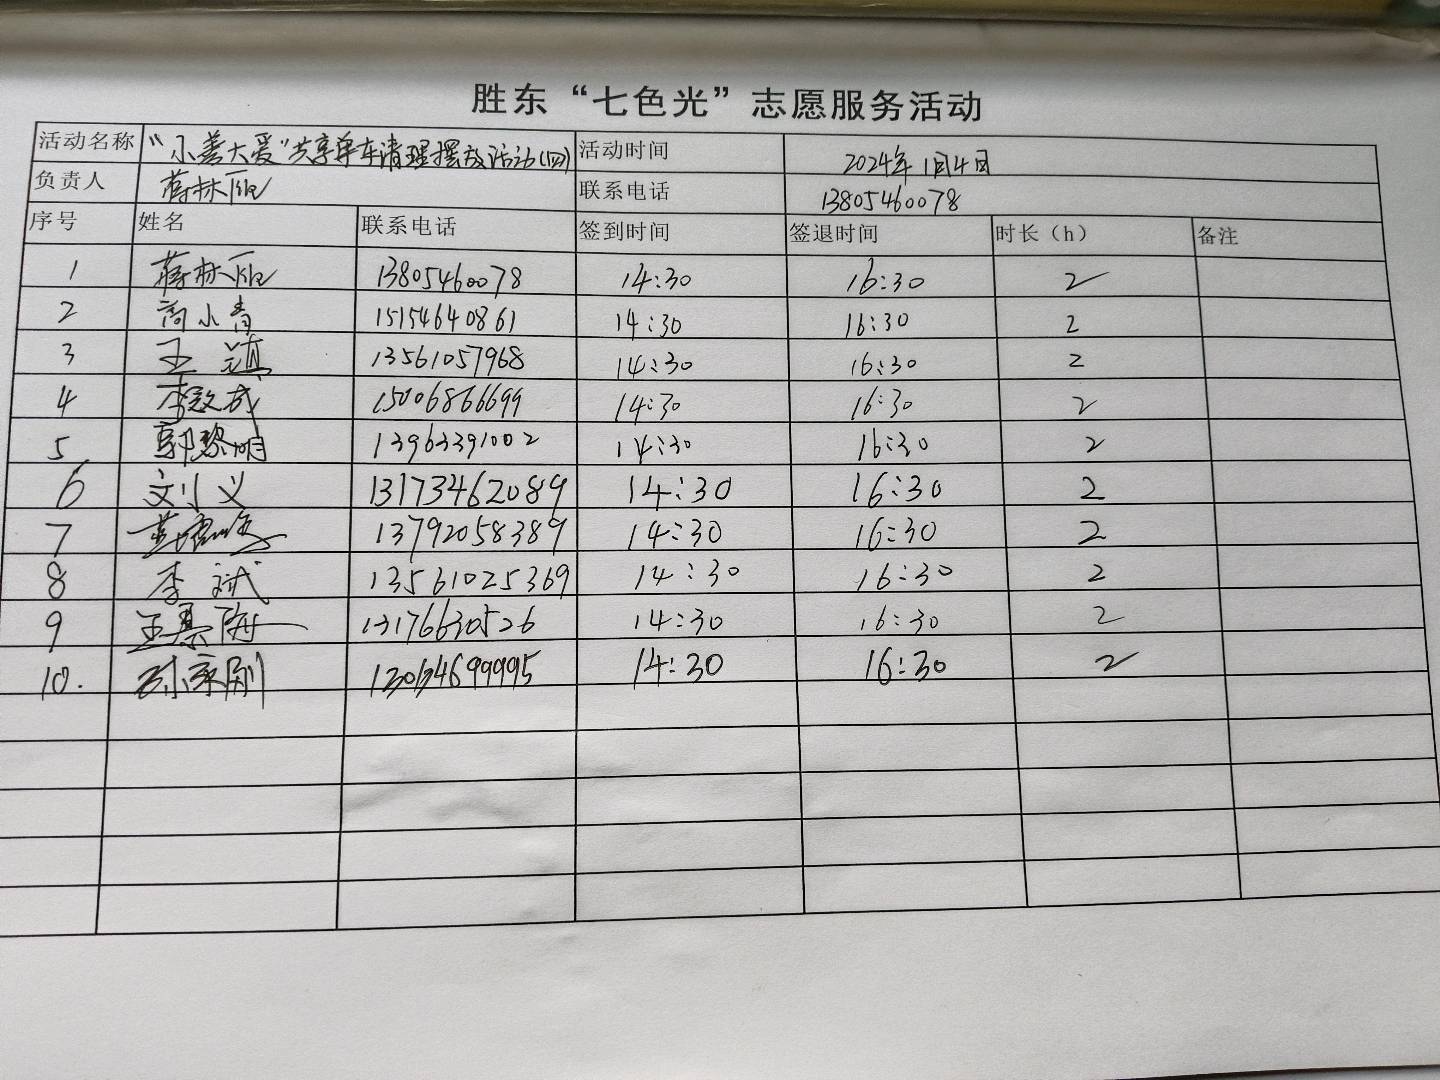 胜东“七色光”志愿服务活动
活动名称 “小善大爱”共享单车清理摆放活动(四) 活动时间 2024年1月4日
负责人 蒋林 联系电话 13805460078
序号 姓名 联系电话 签到时间 签退时间 时长（h） 备注
1 蒋林 13805460078 14:30 16:30 2
2 商小青 15154640861 14:30 16:30 2
3 王镇 13561057968 14:30 16:30 2
4 李 15006866699 14:30 16:30 2
5 郭黎明 13963391002 14:30 16:30 2
6 刘义 13173462089 14:30 16:30 2
7 13792058389 14:30 16:30 2
8 李斌 13561025369 14:30 16:30 2
9 王 13176630526 14:30 16:30 2
10. 14:30 16:30 2